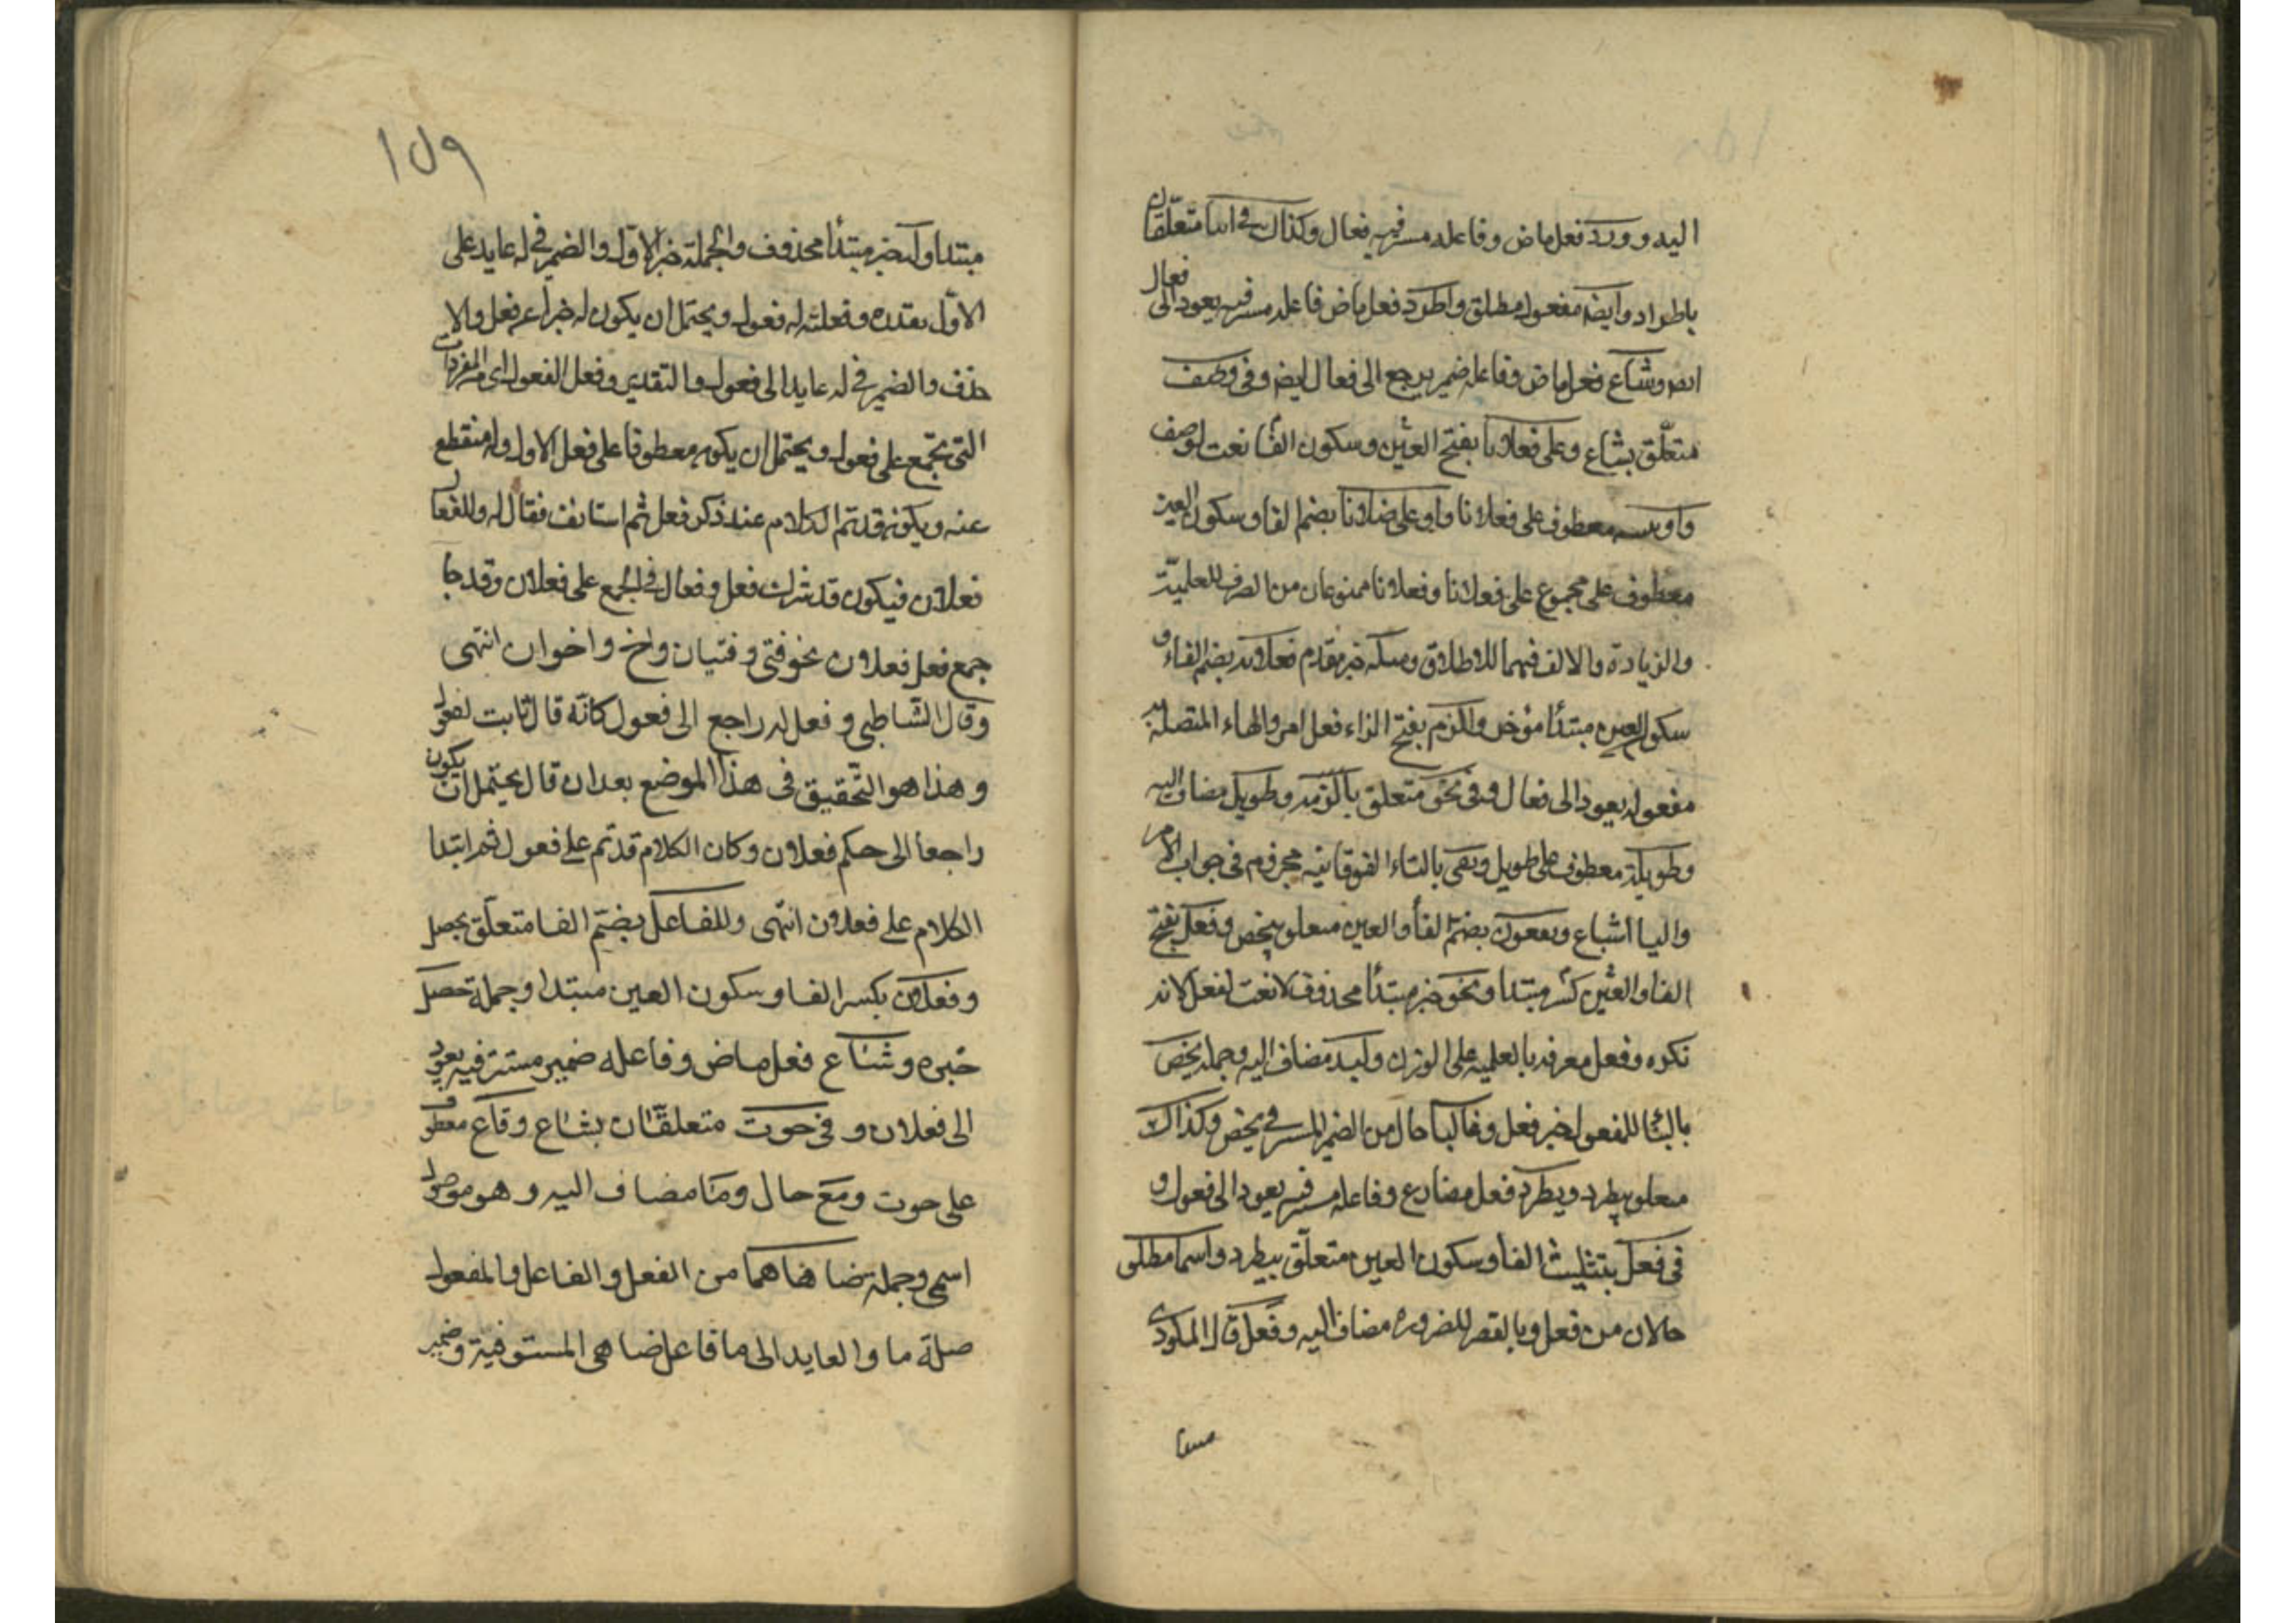 اليه وورد فعل ماض وفاعله مستتر فيه فعال وكذاك في انثاه متعلقان
باطراد وايضا مفعول مطلق واطرد فعل ماض فاعله مستتر فيه يعود الى فعال
ايضا وشاع فعل ماض وفاعله ضمير يرجع الى فعال ايضا وفي وصف
متعلق بشاع وعلى فعلانا بفتح العين وسكون الفا نعت لوصف
واو معطوف على فعلانا واو على فعلانا بضم الفا وسكون العين
معطوف على مجموع على فعلانا وفعلانا ممنوعان من الصرف للعلمية
والزيادة والالف فيهما للاطلاق ومثله خبر مقدم فعلانة بضم الفاء و
سكون العين مبتدأ مؤخر والزم بفتح الزاء فعل امر والهاء المتصلة به
مفعوله يعود الى فعال وفي نحو متعلق بالزمه وطويل مضاف اليه
وطويلة معطوف على طويل وتفى بالتاء الفوقانية مجزوم في جواب الامر
واليا اشباع وبفعول بضم الفأ والعين متعلق بيخص وفعل بفتح
الفا والعين كسر مبتدا ونحو خبر مبتدأ محذوف لا نعت لفعل لانه
نكره وفعل معرفه بالعلميه على الوزن وكبد مضاف اليه وجملة يخص
بالبنا للمفعول خبر فعل وغالبا حال من الضمير المستتر في يخص وكذاك
متعلق بيطرد ويطرد فعل مضارع وفاعله مستتر فيه يعود الى فعول و
في فعل بتثليث الفا وسكون العين متعلق بيطرد واسما مطلق
حالان من فعل وبالقصر للضرورة مضاف اليه وفعل قال المكودي
مبتدا وله خبر مبتدأ محذوف والجملة خبر الاول والضمير في له عايد على
الاول تقديره وفعل له فعول ويحتمل ان يكون له خبرا عن فعل ولا
حذف والضمير في له عايد الى فعول والتقدير وفعل الفعول اي من المفردات
التي تجمع على فعول ويحتمل ان يكون معطوفا على فعل الاول وله منقطع
عنه ويكون قد تم الكلام عند ذكر فعل ثم استانف فقال له وللفعال
فعلان فيكون قد شرك فعل وفعال في الجمع على فعلان وقد جا
جمع فعل فعلان نحو فتى وفتيان واخ واخوان انتهى
وقال الشاطبي وفعل له راجع الى فعول كانه قال ثابت لفعول
وهذا هو التحقيق في هذا الموضع بعد ان قال يحتمل ان يكون
راجعا الى حكم فعلان وكان الكلام قد تم على فعول ثم ابتدا
الكلام على فعلان انتهى وللفاعل بضم الفا متعلق بحصل
وفعلان بكسر الفا وسكون العين مبتدا وجملة حصل
خبره وشاع فعل ماض وفاعله ضمير مستتر فيه يعود
الى فعلان وفي حوت متعلقان بشاع وقاع معطوف
على حوت ومع حال وما مضاف اليه وهو موصول
اسمي وجملة ضاهاهما من الفعل والفاعل والمفعول
صلة ما والعايد الى ما فاعل ضاهى المستتر فيه وضمير